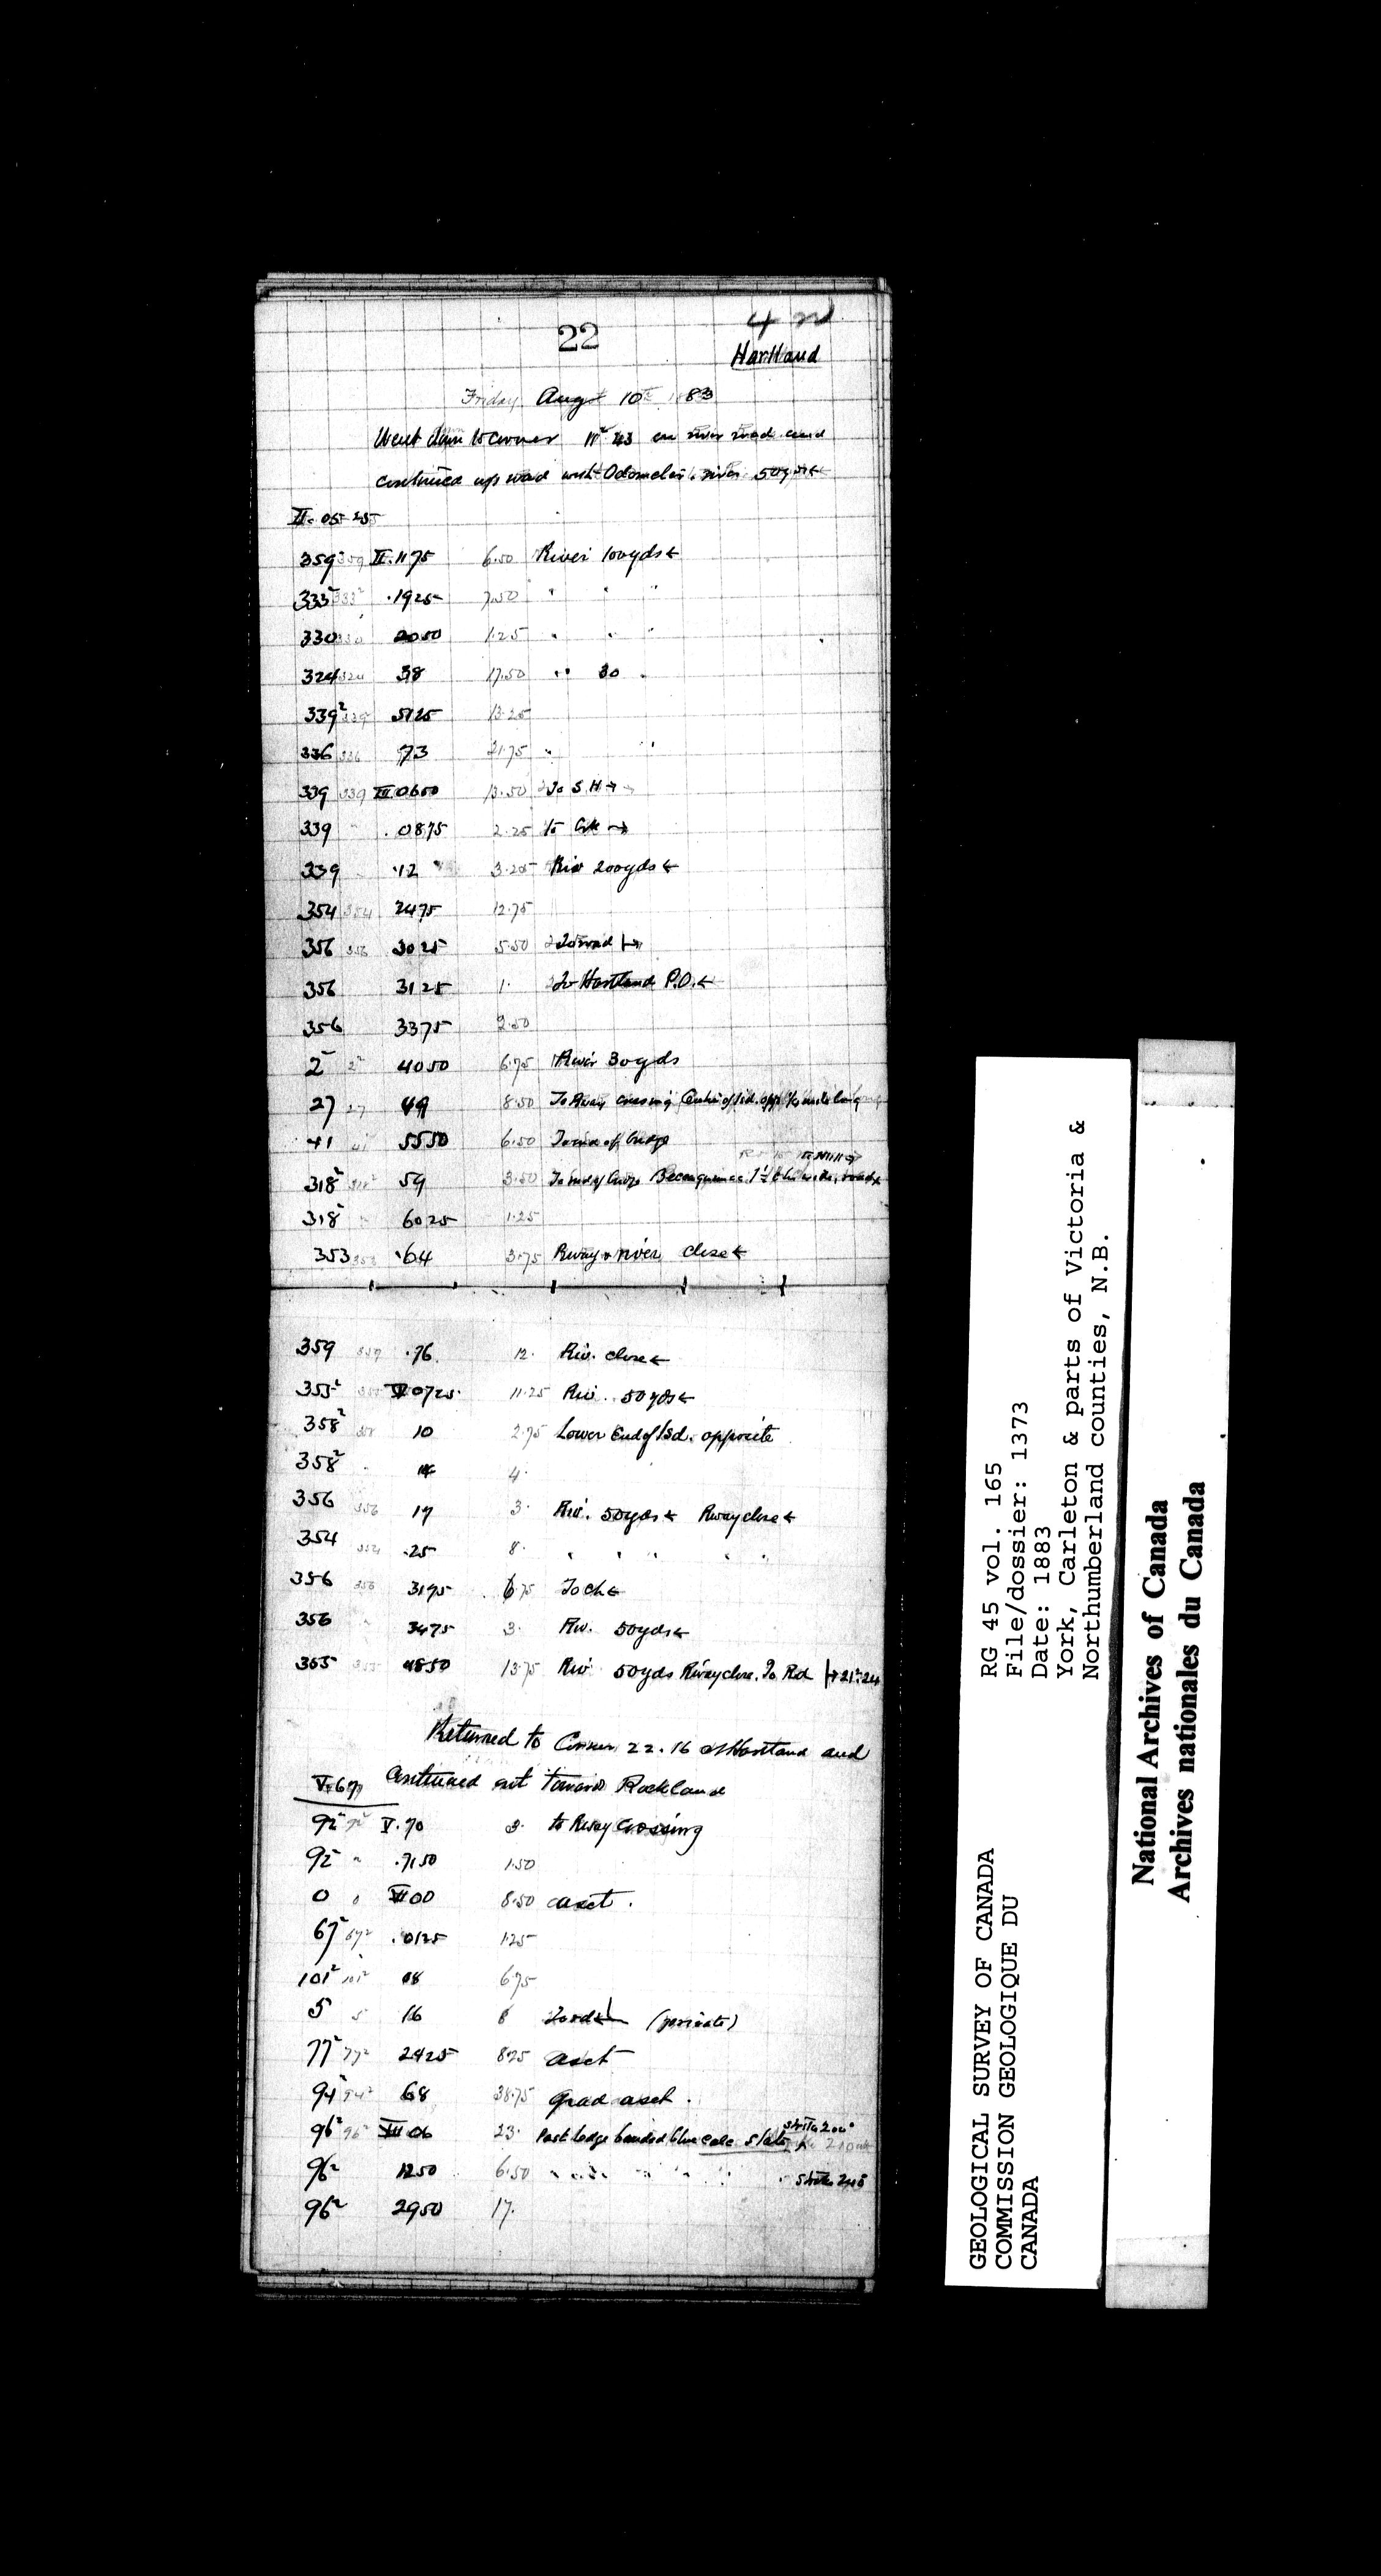 22
Hartland
Friday Augt 10th 1883
Went down to corner 11² 43 on river road and
continued up road with Odometer. river 50yds←
II. 05 25
359² 359 II.1175 6.50 River 100yds←
333² 333² .1925 7.50 " " "
330 330 2050 1.25 " " "
324 324 38 17.50 " 30 "
339² 339² 5125 13.25
336 336 73 21.75 " "
339 339 III 0650 13.50 To S.H→
339 " .0875 2.25 To Crk →
339 .12 3.25 Riv 200yds←
354 354 2475 12.75
356 356 3025 5.50 To road |→
356 3125 1. To Hartland P.O.←
356 3375 2.50
2² 2² 4050 6.75 River 30yds
27 27 49 8.50 To Rway crossing Centre of Isd. opp. mile long
41 41 5550 6.50 To end of bridge
318² 318² 59 3.50 To end of bridge Becaguimec 1½ ch wide, road
318² " 6025 1.25
353 353 .64 3.75 Rway & river close←
359 359 .76 12. Riv. close←
355² 0725 11.25 Riv. 50yds←
358² 358 10 2.75 Lower End of Isd. opposite
358² " 14 4.
356 356 17 3. Riv. 50yds← Rway close←
354 354 .25 8. " " " " "
356 356 3175 6.75 To ch←
356 " 3475 3. Riv. 50yds←
355 355 4850 13.75 Riv 50yds Rway close. To Rd |→ 21².24
Returned to Corner 22.16 at Hartland and
V.67 Continued out towards Rockland
92² 92² V.70 3. to Rway crossing
92² " .7150 1.50
0 0 VI 00 8.50 asct.
67² 67² .0125 1.25
101² 101² 08 6.75
5 5 16 8 To rd← (private)
77² 77² 2425 8.25 asct
94² 94² 68 38.75 grad asct.
strike 200°
96² 96² VII 06 23. Past ledge banded blue calc slate
96² 1250 6.50 " " " " " strike
96² 2950 17.
RG 45 vol. 165
File/dossier: 1373
Date: 1883
York, Carleton & parts of Victoria &
Northumberland counties, N.B.
GEOLOGICAL SURVEY OF CANADA
COMMISSION GEOLOGIQUE DU
CANADA
National Archives of Canada
Archives nationales du Canada